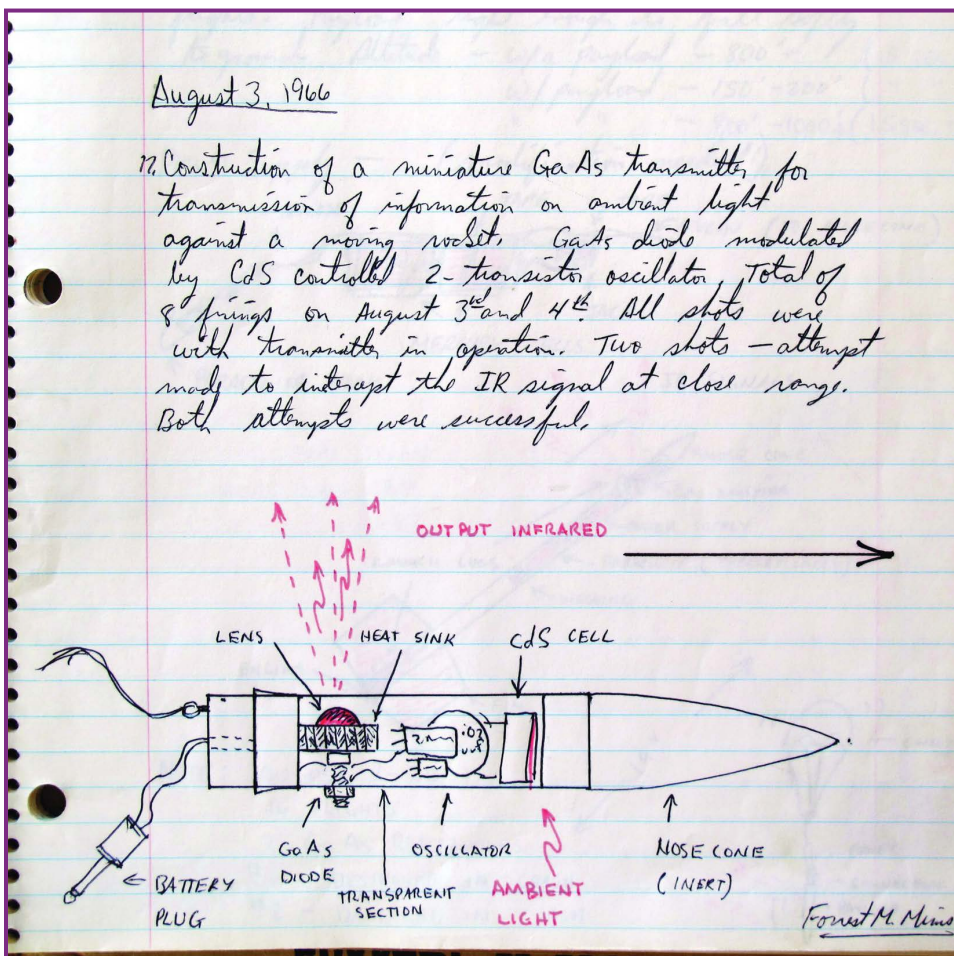 August 3, 1966
12. Construction of a miniature GaAs transmitter for
transmission of information on ambient light
against a moving rocket. GaAs diode modulated
by CdS controlled 2-transistor oscillator. Total of
8 firings on August 3rd and 4th. All shots were
with transmitter in operation. Two shots – attempt
made to intercept the IR signal at close range.
Both attempts were successful.
OUTPUT INFRARED
LENS
HEAT SINK
CdS CELL
GaAs
DIODE
TRANSPARENT
SECTION
OSCILLATOR
AMBIENT
LIGHT
NOSE CONE
(INERT)
BATTERY
PLUG
Forrest M. Mims